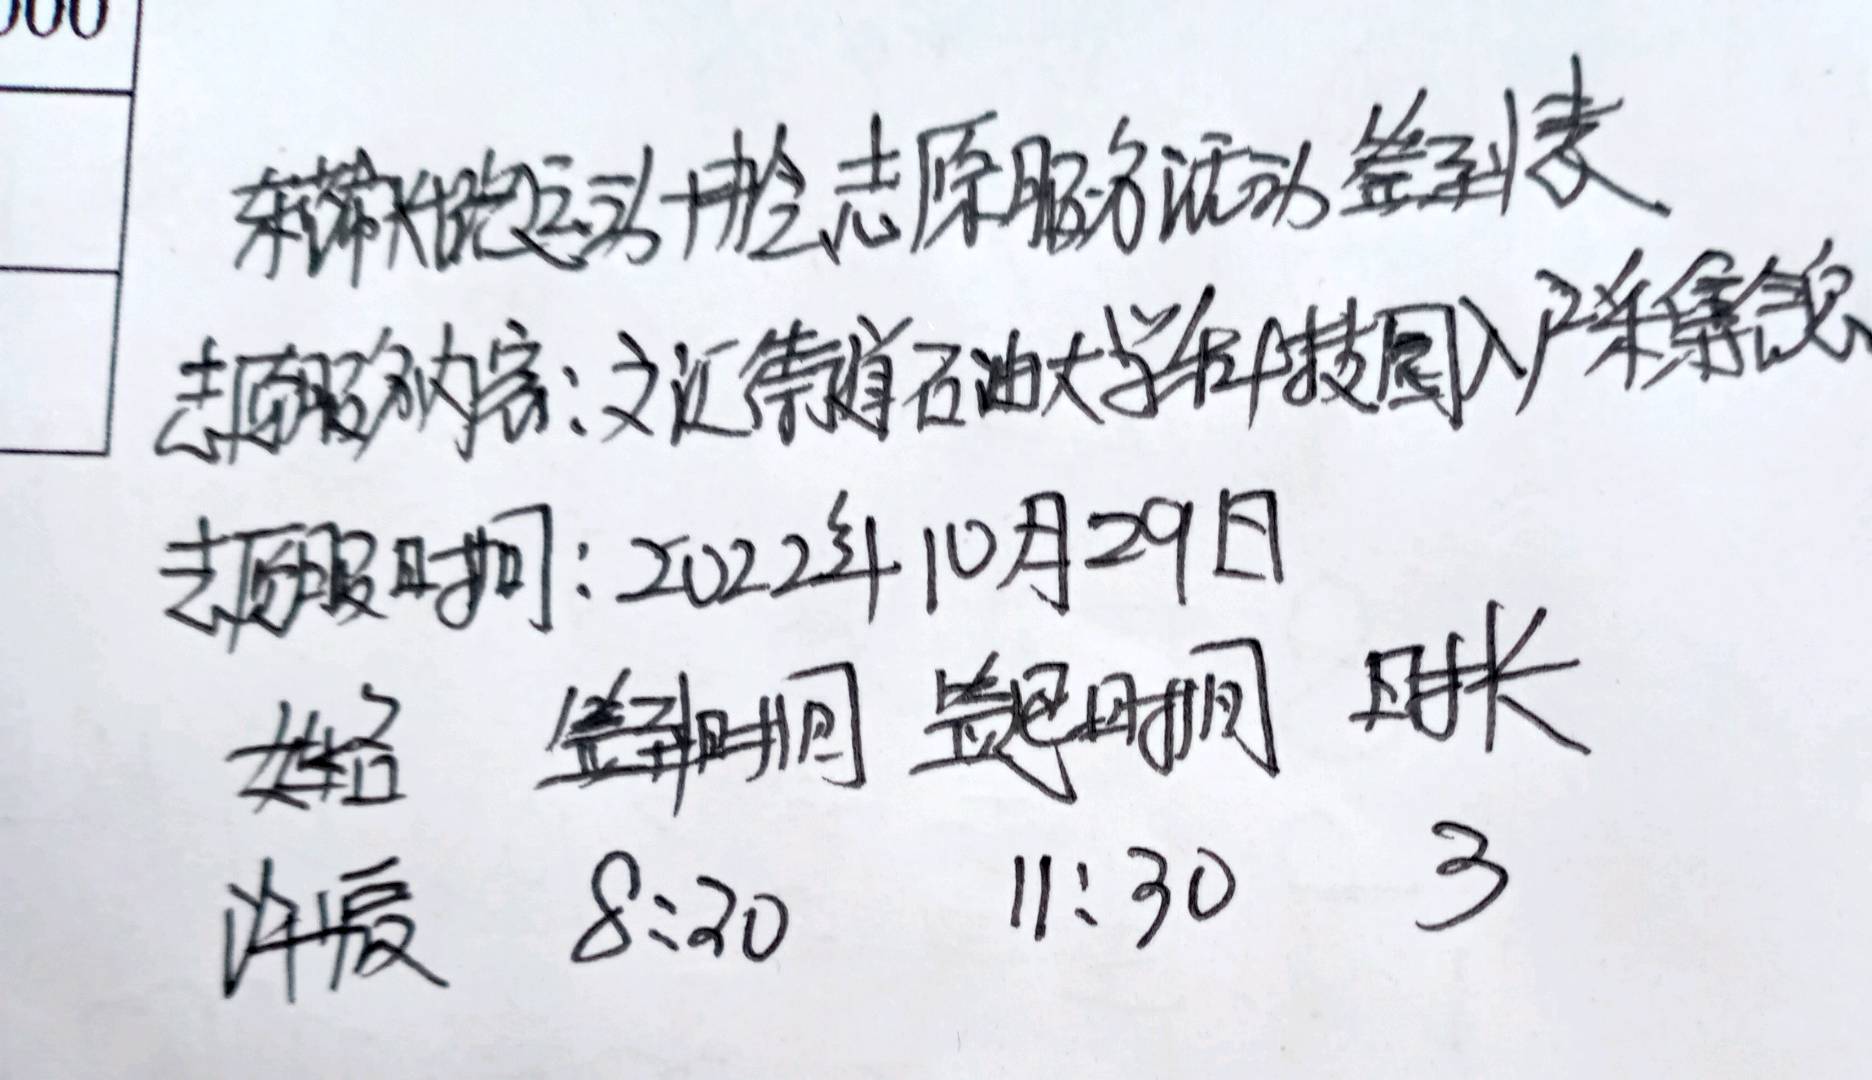 000
东营市长跑运动协会志愿服务活动签到表
志愿服务内容：文汇街道石油大学科技园入户采集信息
志愿服时间：2022年10月29日
姓名 签到时间 签退时间 时长
许 8:20 11:30 3